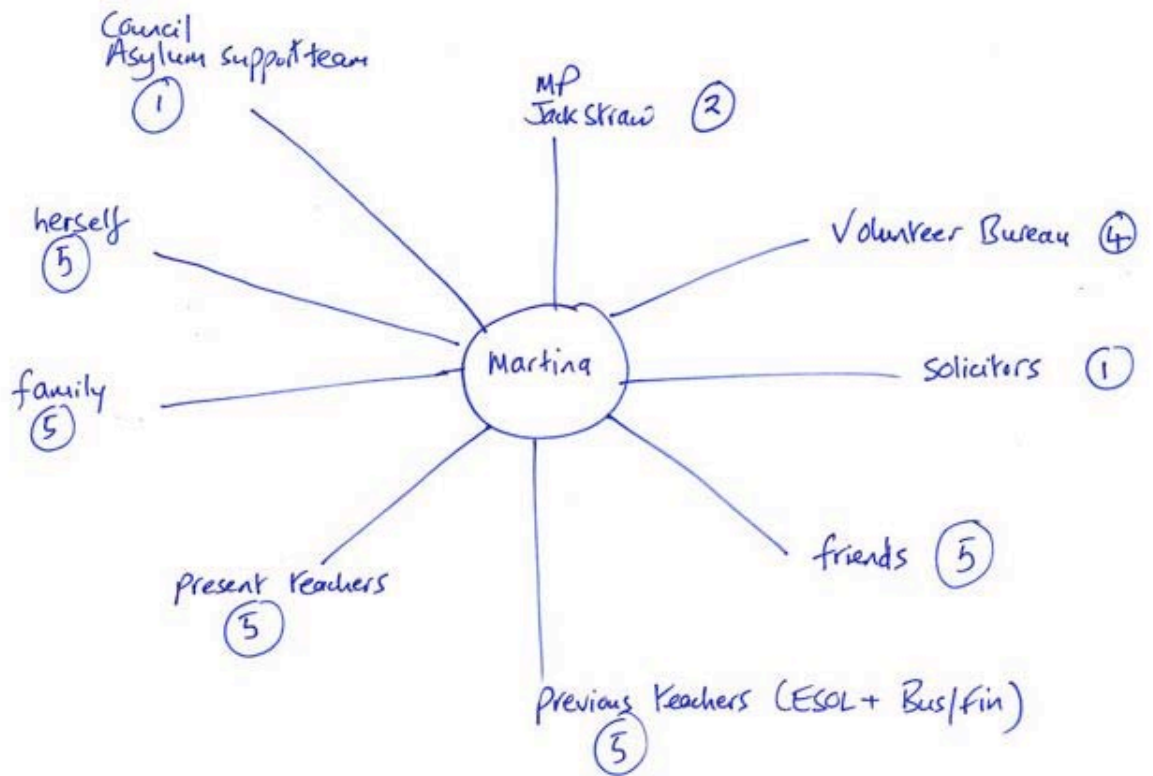 Council
Asylum support team
1
MP
Jack Straw 2
Volunteer Bureau 4
herself
5
Martina
solicitors 1
family
5
friends 5
present teachers
5
previous teachers (ESOL + Bus/Fin)
5